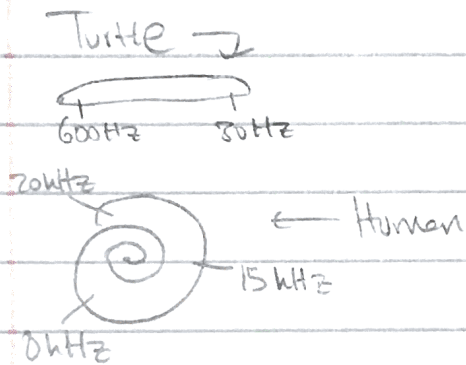 Turtle
600Hz 30Hz
20kHz
Human
15kHz
8kHz